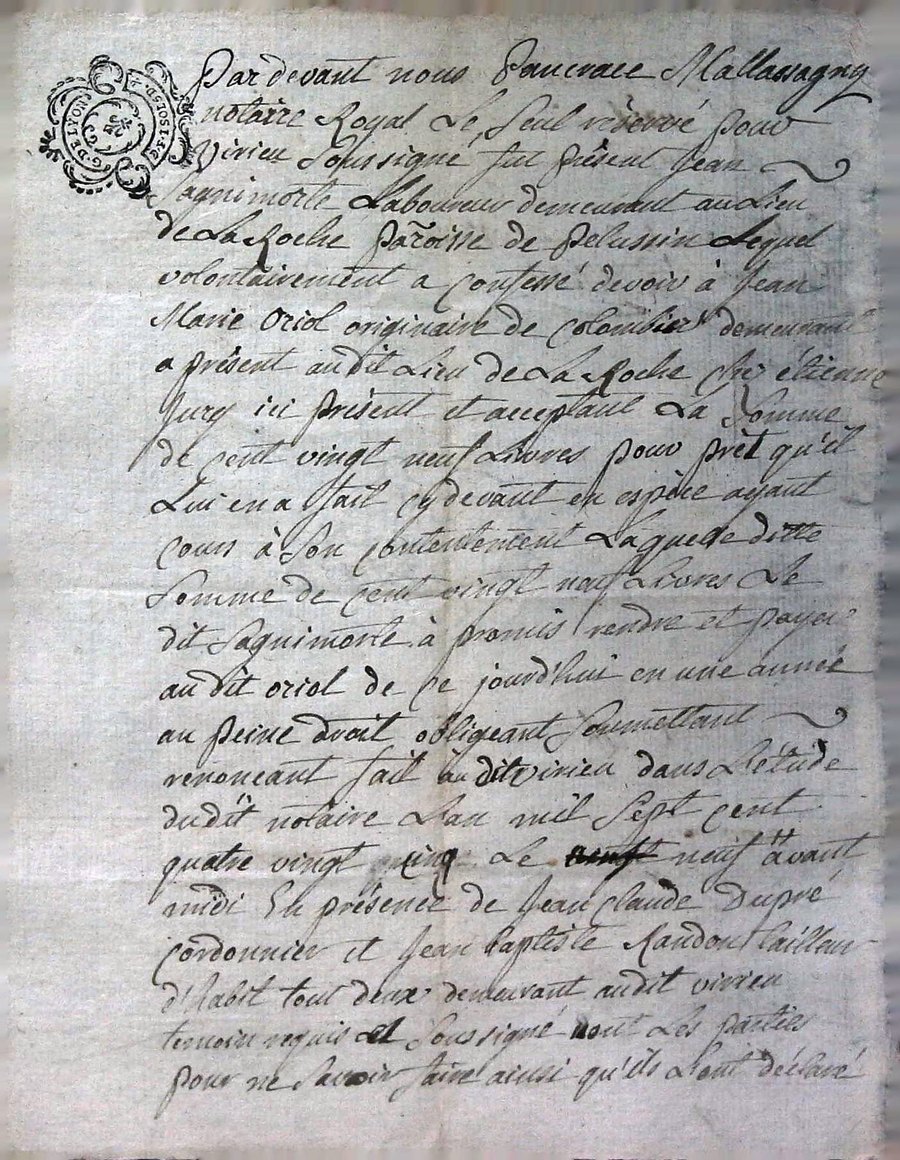 G. DE LYON
Par devant nous Pancrace Mallassagny
notaire Royal Le Seul réservé pour
Virieu Soussigné, fut présent Jean
Sagnimorte Laboureur demeurant au Lieu
de La Roche paroisse de pelussin Lequel
volontairement a confessé devoir à Jean
Marie oriol originaire de colombier demeurant
a présent audit Lieu de La Roche chez étienne
Jury ici présent et acceptant La Somme
de cent vingt neuf Livres pour prèt qu'il
Lui en a fait cy devant en espèce ayant
cours à Son contentement Laquelle ditte
Somme de cent vingt neuf Livres Le
dit Sagnimorte à promis rendre et payer
audit oriol de ce jourd'hui en une année
au peine droit obligeant Soumettant
renonçant fait audit virieu dans L'étude
dudit notaire L'an mil Sept cent
quatre vingt cinq Le neuf avant
midi En présence de Jean Claude Dupré
cordonnier et Jean baptiste Randon tailleur
d'habit tout deux demeurant audit virieu
temoin requis et Soussigné non Les parties
pour ne Savoir faire ainsi qu'ils L'ont déclaré